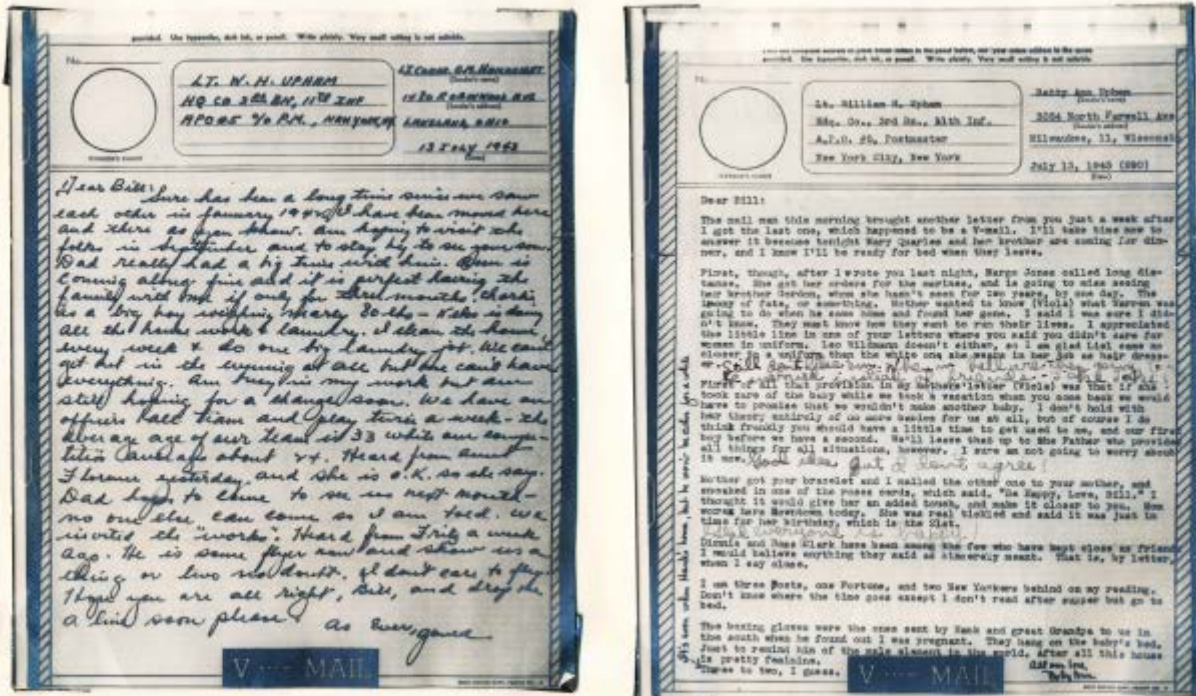 provided. Use typewriter, dark ink, or pencil. Write plainly. Very small writing is not suitable.
No.
LT. W. H. UPHAM
HQ CO 3RD BN, 11TH INF
APO #5 c/o P.M., NEW YORK, NY
(Sender's name)
1480 ROBINWOOD AVE
(Sender's address)
LAKELAND, OHIO
13 JULY 1943
(Date)
Dear Bill:
Sure has been a long time since we saw
each other in January 1942. I have been moved here
and there as you know. Am hoping to visit the
folks in September and to stay by to see your son.
Dad really had a big time with him. is
coming along fine and it is perfect having the
family with me if only for three months.
is a big boy weighing nearly 30 lbs - is doing
all the house work & laundry. I clean the house
every week & do one big laundry job. We can't
get out in the evening at all but one can't have
everything. Am busy in my work but am
still hoping for a change soon. We have an
officers ball team and play twice a week - the
average age of our team is 33 while our compe-
tition average about 24. Heard from aunt
Florence yesterday, and she is O.K. so she say.
Dad hopes to come to see us next month -
no one else can come so I am told. We
invited the "works". Heard from Fritz a week
ago. He is some flyer now and show us a
thing or two no doubt. I don't care to fly.
Hope you are all right, Bill, and drop me
a line soon please. As Ever,
V ···- MAIL
provided. Use typewriter, dark ink, or pencil. Write plainly. Very small writing is not suitable.
No.
Lt. William H. Upham
Hdq. Co., 3rd Bn., 11th Inf.
A.P.O. #5, Postmaster
New York City, New York
Betty Ann Upham
(Sender's name)
3054 North Farwell Ave
(Sender's address)
Milwaukee, 11, Wisconsin
July 13, 1943
(Date)
Dear Bill:
The mail man this morning brought another letter from you just a week after
I got the last one, which happened to be a V-mail. I'll take time now to
answer it because tonight Mary Quarles and her brother are coming for din-
ner, and I know I'll be ready for bed when they leave.
First, though, after I wrote you last night, Marge Jones called long dis-
tance. She got her orders for the marines, and is going to miss seeing
her brother Gordon, whom she hasn't seen for two years, by one day. The
irony of fate, or something. Mother wanted to know (Viola) what Warren was
going to do when he came home and found her gone. I said I was sure I did-
n't know. They must know how they want to run their lives. I appreciated
the little line in one of your letters where you said you didn't care for
women in uniform. Leo Wildmann doesn't either, so I am glad came no
closer to a uniform than the white one she wears in her job as hair dress-
First of all that provision in my mothers' letter (Viola) was that if she
took care of the baby while we took a vacation when you come back we would
have to promise that we wouldn't make another baby. I don't hold with
her theory entirely of no more babies for us at all, but of course I do
think frankly you should have a little time to get used to me, and our first
boy before we have a second. We'll leave that up to the Father who provides
all things for all situations, however. I sure am not going to worry about
it now. Good idea but I don't agree!
Mother got your bracelet and I mailed the other one to your mother, and
sneaked in one of the roses cards, which said, "Be Happy, Love, Bill." I
thought it would give her an added touch, and make it closer to you. Mom
wore hers downtown today. She was real tickled and said it was just in
time for her birthday, which is the 21st.
everyone is
Dinnie and Clark have been among the few who have kept close as friends
I would believe anything they said as sincerely meant. That is, by letter,
when I say close.
I am three Posts, one Fortune, and two New Yorkers behind on my reading.
Don't know where the time goes except I don't read after supper but go to
bed.
The boxing gloves were the ones sent by Hank and great Grandpa to us in
the south when he found out I was pregnant. They hang on the baby's bed.
Just to remind him of the male element in the world, after all this house
is pretty feminine.
Three to two, I guess.
V ···- MAIL